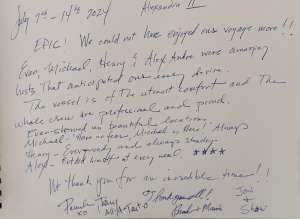 July 7th - 14th 2024 Alexandra II
EPIC! We could not have enjoyed our voyage more!!
Evan, Michael, Henry & Alex Andre were amazing
hosts That anticipated our every desire.
The vessel is of The utmost comfort and The
whole crew are professional and proud.
Evan - in beautiful locations,
Michael, "Have no fear, Michael is Here! Always
Henry - Ever-ready and always steady
at every meal. ****
We thank you for an incredible time!!
Thank you all!
XO Jon
& Marie &